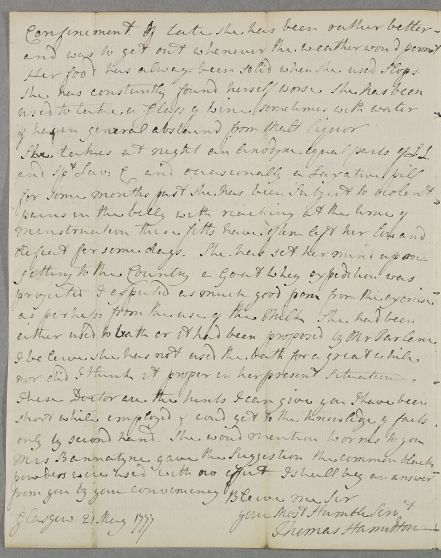 Confinement. Of late she has been rather better
and was to get out whenever the weather woud permit
Her food has always been solid when she used Slops
She has constantly found herself worse She has been
used to take a Glass of Wine sometimes with water
& has in general abstaind from Malt liquor
She takes at night an Anodyne equal parts of
and Spt Lav. C and occasionally a Laxative pill
for some months past she has been Subject to violent
pains in the belly with reaching at the time of
menstruation these fitts have often left her low and
for some days. She has set her mind upon
getting to the Country a Goat Whey expedition was
projected I expected as much good from the exercise
as perhaps from the use of the Milk She had been
either used to bath or it had been proposed by Mr Parlane
I beleive she has not used the bath for a great while
nor did I think it proper in her present Situation
These Doctor are the hints I can give you I have been
short while employed & coud get to the knowledge of facts
only by second hand. She woud mention worms to you
Mrs Bannatyne gave the Suggestion the common black
powders were used with no effect I shall beg an answer
from you by your conveniency Beleive me Sir
your Most Humble Servt
Glasgow 21 May 1777
Thomas Hamilton